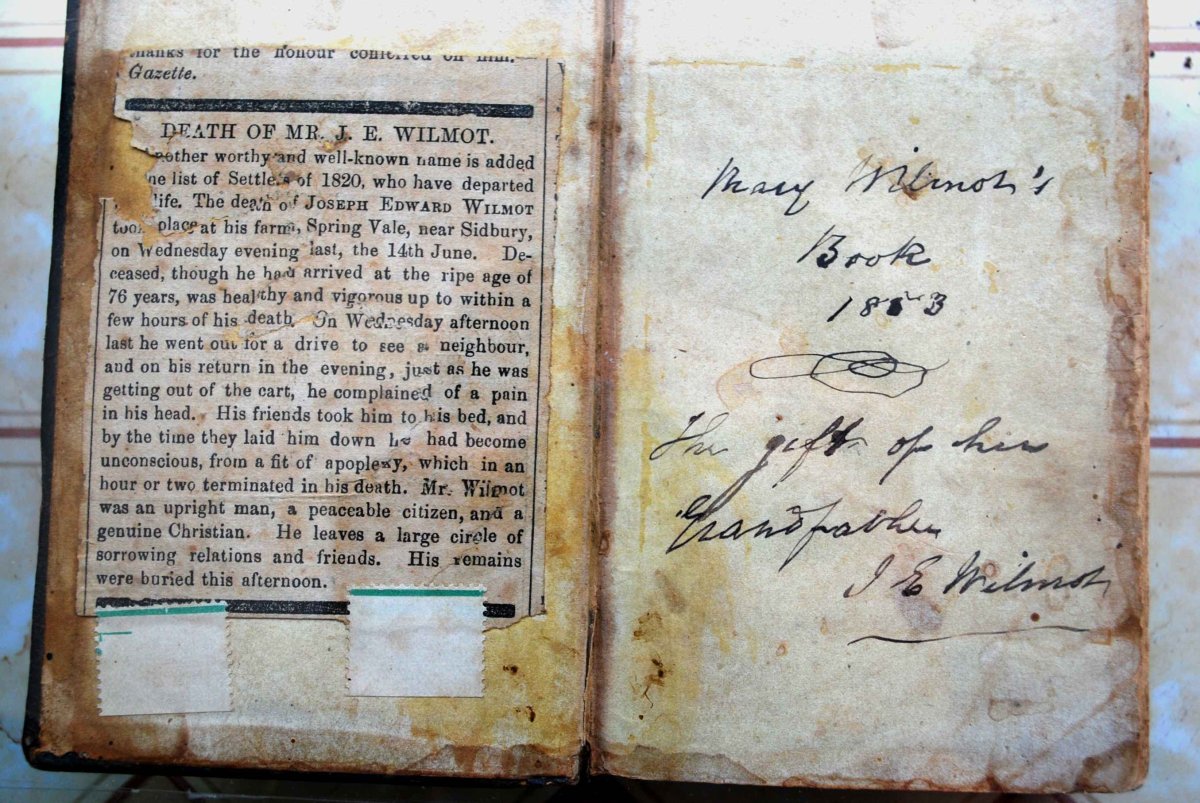 thanks for the honour conferred on him.—
Gazette.
DEATH OF MR. J. E. WILMOT.
nother worthy and well-known name is added
ne list of Settlers of 1820, who have departed
life. The death of JOSEPH EDWARD WILMOT
took place at his farm, Spring Vale, near Sidbury,
on Wednesday evening last, the 14th June. De-
ceased, though he had arrived at the ripe age of
76 years, was healthy and vigorous up to within a
few hours of his death. On Wednesday afternoon
last he went out for a drive to see a neighbour,
and on his return in the evening, just as he was
getting out of the cart, he complained of a pain
in his head. His friends took him to his bed, and
by the time they laid him down he had become
unconscious, from a fit of apoplexy, which in an
hour or two terminated in his death. Mr. Wilmot
was an upright man, a peaceable citizen, and a
genuine Christian. He leaves a large circle of
sorrowing relations and friends. His remains
were buried this afternoon.
Mary Wilmot's
Book
The gift of her
Grandfather
J E Wilmot